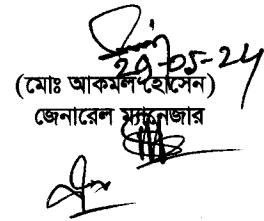 29-05-24
(মোঃ আকমল হোসেন)
জেনারেল ম্যানেজার